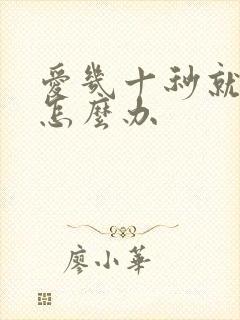 愛幾十秒就
怎麼办
廖小華